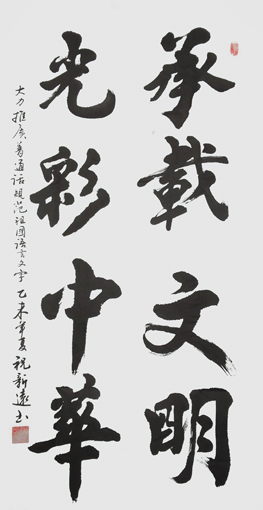 承載文明
光彩中華
大力推廣普通话規范祖國語言文字 乙未年夏 祝新遠书